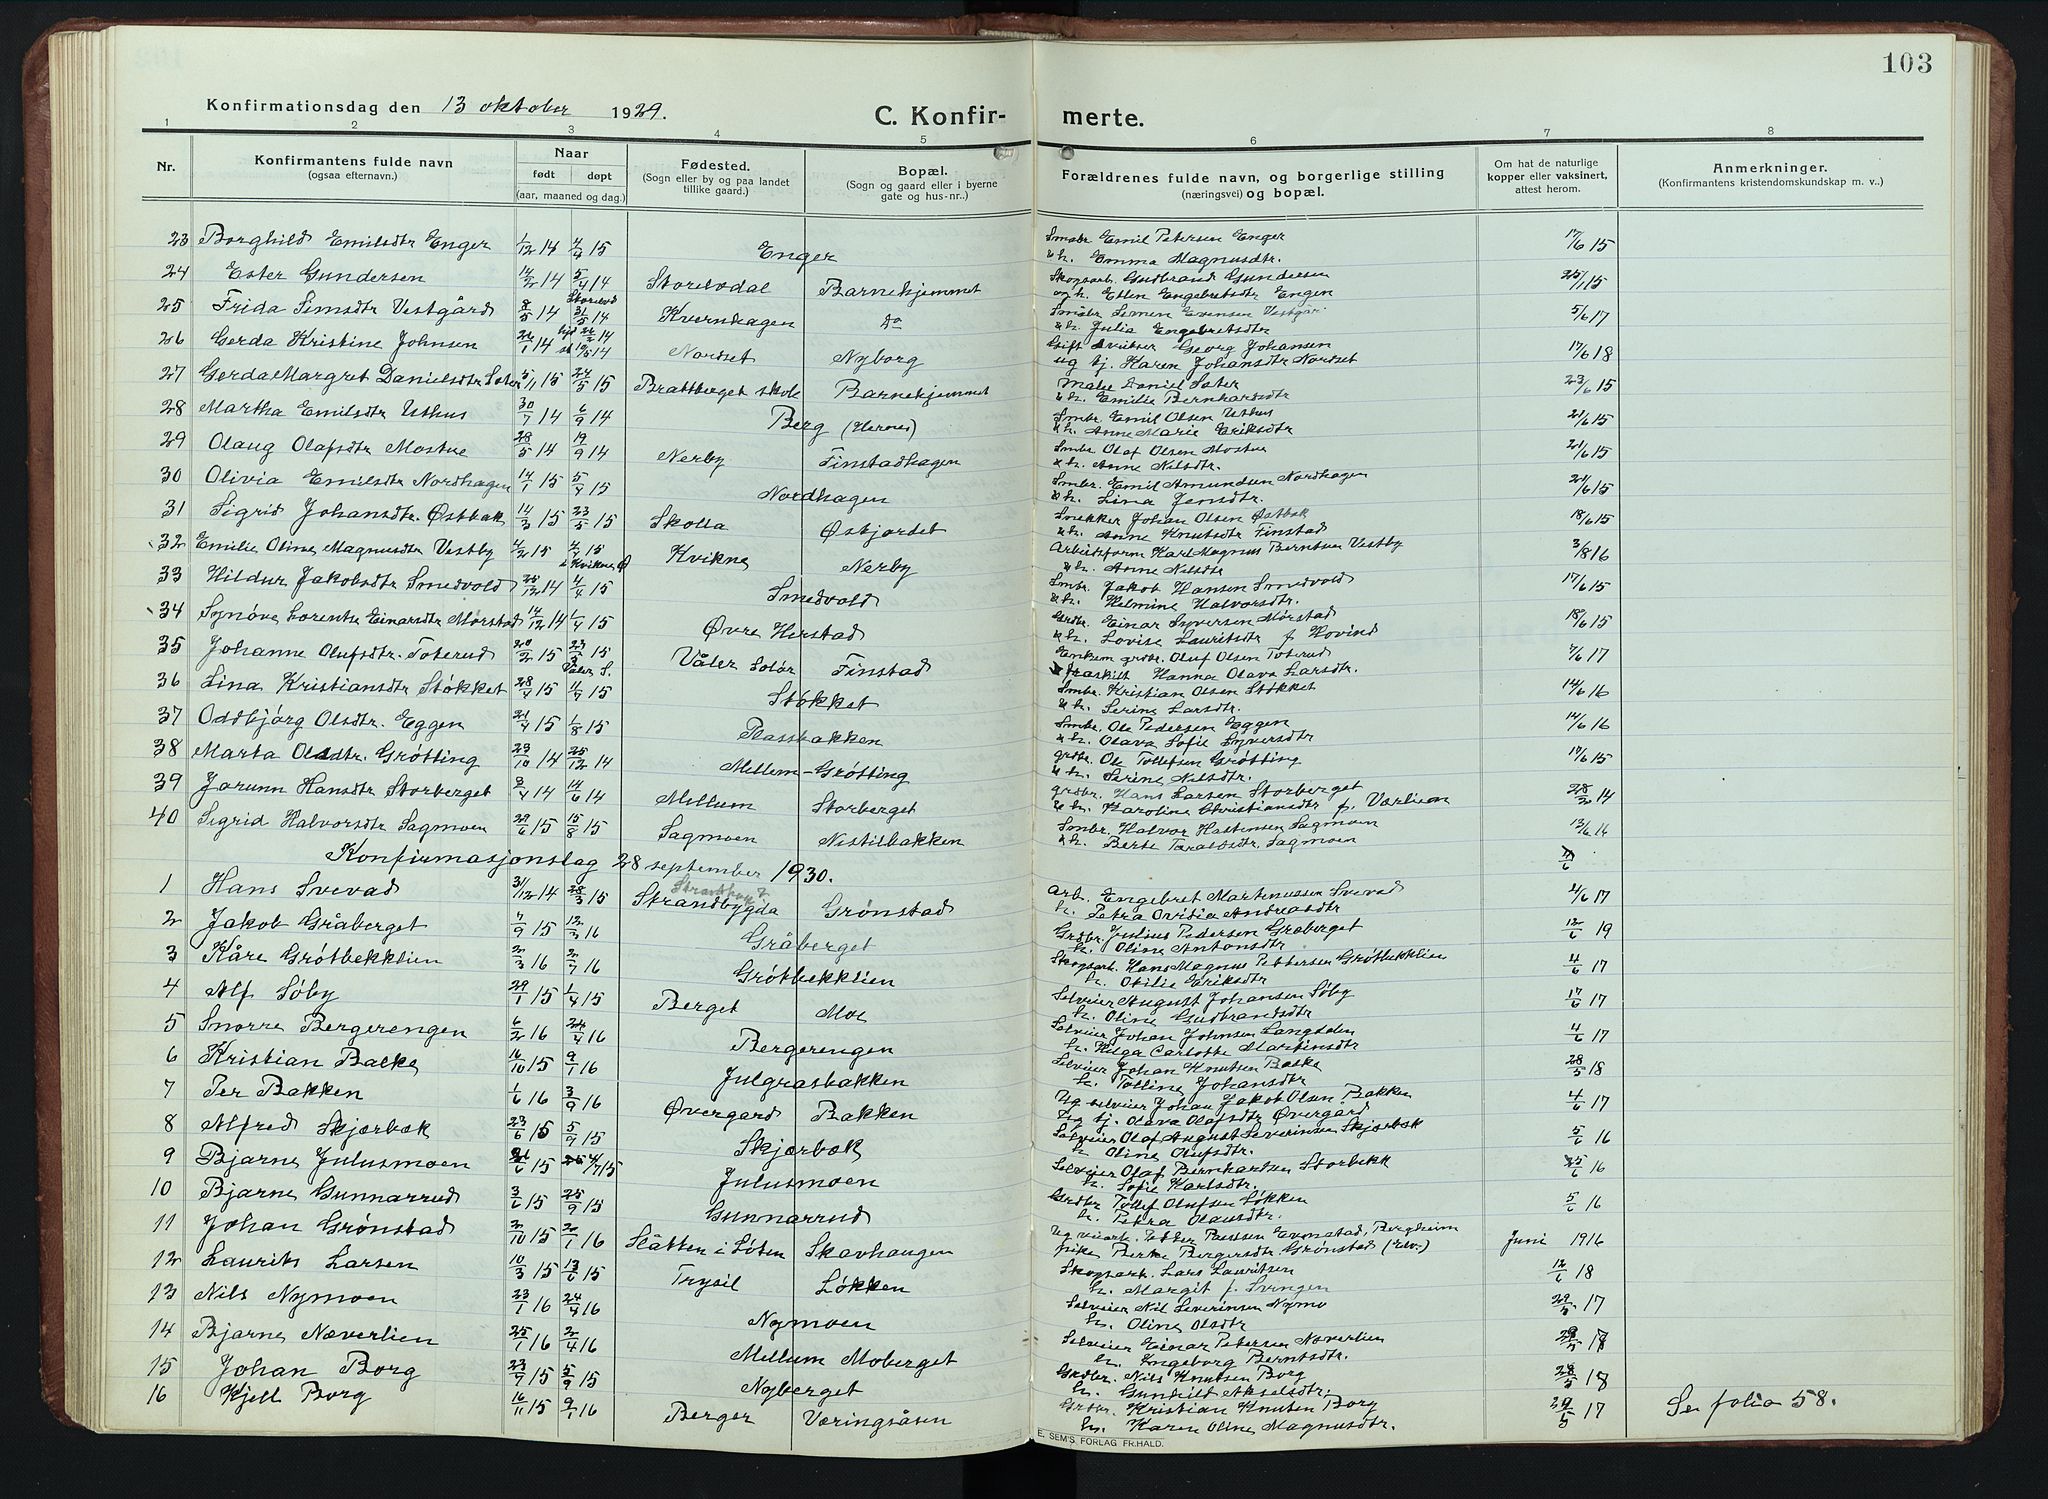 103
Konfirmationsdag den 13 oktober 1929.
C. Konfirmerte.
1 2 3 4 5 6 7 8
Nr.
Konfirmantens fulde navn
(ogsaa efternavn.)
Naar
født døpt
(aar, maaned og dag.)
Fødested.
(Sogn eller by og paa landet
tillike gaard.)
Bopæl.
(Sogn og gaard eller i byerne
gate og hus-nr..)
Forældrenes fulde navn, og borgerlige stilling
(næringsvei) og bopæl.
Om hat de naturlige
kopper eller vaksinert,
attest herom.
Anmerkninger.
(Konfirmantens kristendomskundskap m. v..)
23 Borghild Emilsdtr Enger 1/12 14 4/4 15 Enger Smbr Emil Petersen Enger 17/6 15
& h. Emma Magnusdtr.
24 Ester Gundersen 14/2 14 5/4 14 Storelvdal Barnehjemmet Skogsarb Gudbrand Gundersen 25/1 15
og h. Ellen Engebretsdtr Engen
25 Frida Simsdtr Vestgård 8/5 14 Storelvd 31/5 14 Kvernhagen Do Småbr Simen Evensen Vestgår 5/6 17
& h. Julia Engebretsdtr
26 Gerda Kristine Johnsen 26/1 14 Nordset Nyborg Gift Georg Johansen 17/6 18
ug tj. Karen Johansdtr Nordset
27 Gerda Margret Danielsdtr Sæter 5/11 15 24/5 15 Brattberget skole Barnehjemmet Maler Daniel Sæter 23/6 15
& h. Emilie Bernhardsdtr
28 Martha Emilsdtr Usthus 30/7 14 6/9 14 Berg (Hernes) Smbr. Emil Olsen Usthus 21/6 15
& h. Anne Marie Eriksdtr
29 Olaug Olafsdtr Mostue 28/5 14 19/9 14 Nerby Finstadhagen Smbr Olaf Olsen Mostue 21/6 15
& h. Anne Nilsdtr.
30 Olivia Emilsdtr Nordhagen 14/1 15 5/4 15 Nordhagen Smbr. Emil Amundsen Nordhagen 21/6 15
& h. Lina Jensdtr.
31 Sigrid Johansdtr. Østbak 14/3 15 23/5 15 Skolla Østjordet Snekker Johan Olsen Østbak 18/6 15
& h. Anne Knutsdtr Finstad
32 Emilie Oline Magnusdtr Vestby 4/2 15 4/4 15 i Kvikne Kvikne Nerby Arbeidsform Karl Magnus Berntsen Vestby 3/8 16
& h. Anne Nilsdtr
33 Hildur Jakobsdtr Smedvold 25/12 14 4/4 15 Smedvold Smbr. Jakob Hansen Smedvold 17/6 15
& h. Helmine Halvorsdtr.
34 Synøve Lorentse Einarsdtr Mørstad 14/12 14 1/4 15 Øvre Herstad Grdbr. Einar Syversen Mørstad 18/6 15
& h. Lovise Lauritsdtr f. Hovind
35 Johanne Olufsdtr. Toterud 20/2 15 23/5 15 Våler S. Våler Solør Finstad Enkem grdbr. Oluf Olsen Toterud 7/6 17
fraskilt Hanna Olava Larsdtr.
36 Lina Kristiansdtr Støkket 28/4 15 4/7 15 Støkket Smbr. Kristian Olsen Støkket 14/6 16
& h. Serine Larsdtr.
37 Oddbjørg Olsdtr. Eggen 21/4 15 1/8 15 Plassbakken Smbr. Ole Pedersen Eggen 14/6 16
& h. Olava Sofie Syversdtr
38 Marta Olsdtr. Grøtting 29/10 14 25/12 14 Mellem-Grøtting grdbr. Ole Tollefsen Grøtting 17/6 15
& h. Serine Nilsdtr.
39 Jorunn Hansdtr Storberget 8/4 14 14/6 14 Mellum Storberget grdbr. Hans Larsen Storberget 28/2 14
& h. Karoline Christiansdtr f. Værlien
40 Sigrid Halvorsdtr Sagmoen 29/6 15 15/8 15 Sagmoen Nestilbakken Smbr. Halvor Hastensen Sagmoen 13/6 14
& h. Berte Taraldsdtr. Sagmoen
Konfirmasjonsdag 28 september 1930.
1 Hans Svevad 31/12 14 28/3 15 Strandbygda Grønstad Arb. Engebret Martinussen Svevad 2/6 17
h. Petra Ovidia Andreasdtr
2 Jakob Gråberget 7/9 15 12/3 16 Gråberget Grdbr. Julius Pedersen Gråberget 12/6 19
h. Oline Antonsdtr
3 Kåre Grøtbekklien 2/3 16 2/7 16 Grøtbekklien Skogsarb. Hans Magnus Pettersen Grøtbekklien 4/6 17
h. Otilie Eriksdtr
4 Alf Søby 29/1 15 1/4 15 Berget Moe Selveier August Johansen Søby 17/6 17
h. Oline Gudbrandsdtr
5 Snorre Bergerengen 6/2 16 24/4 16 Bergerengen Selveier Johan Johnsen Langdalen 4/6 17
h. Helga Carlotte Martinsdtr
6 Kristian Bakke 16/10 15 9/1 16 Julgrasbakken Selveier Johan Knutsen Bakke 28/5 18
h. Tolline Johansdtr
7 Per Bakken 1/6 16 3/9 16 Øvergard Bakken Ug selveier Johan Jakob Olsen Bakken 4/6 17
Ug tj. Olava Olafsdtr Øvergard
8 Alfred Skjærbæk 23/6 15 5/9 15 Skjærbæk Selveier Olaf August Severinsen Skjærbæk 5/6 16
h. Oline Olufsdtr.
9 Bjarne Julusmoen 26/6 15 4/7 15 Julusmoen Selveier Olaf Bernhartsen Storbekk 25/6 16
h. Sofie Karlsdtr.
10 Bjarne Gunnarrud 3/6 15 25/9 15 Gunnarrud Grdbr Tollef Olufsen Løkken 5/6 16
h. Petra Olausdtr.
11 Johan Grønstad 2/10 15 2/1 16 Slåtten i Løten Skavhaugen Ug veiarb. Petter Paulsen Evenstad, Bergheim Juni 1916
pike Berte Bergersdtr. Grønstad (Elv.)
12 Laurits Larsen 10/3 15 13/6 15 Trysil Løkken Skogsarb. Lars Lauritsen 12/6 18
h. Margit f. Svingen
13 Nils Nymoen 23/1 16 24/4 16 Nymoen Selveier Nil Severinsen Nymo 29/5 17
h. Oline Olsdtr
14 Bjarne Næverlien 25/1 16 2/4 16 Mellum Moberget Selveier Einar Petersen Næverlien 29/5 17
h. Ingeborg Berntsdtr.
15 Johan Borg 23/7 15 5/9 15 Nyberget Grdbr. Nils Knutsen Borg 28/5 18
h. Gunhild Akselsdtr.
16 Kjell Borg 16/11 15 9/1 16 Berger Væringsåsen Grdbr. Kristian Knutsen Borg 29/5 17 Se folio 58.
h. Karen Oline Magnusdtr.
E. SEM'S FORLAG FR.HALD.